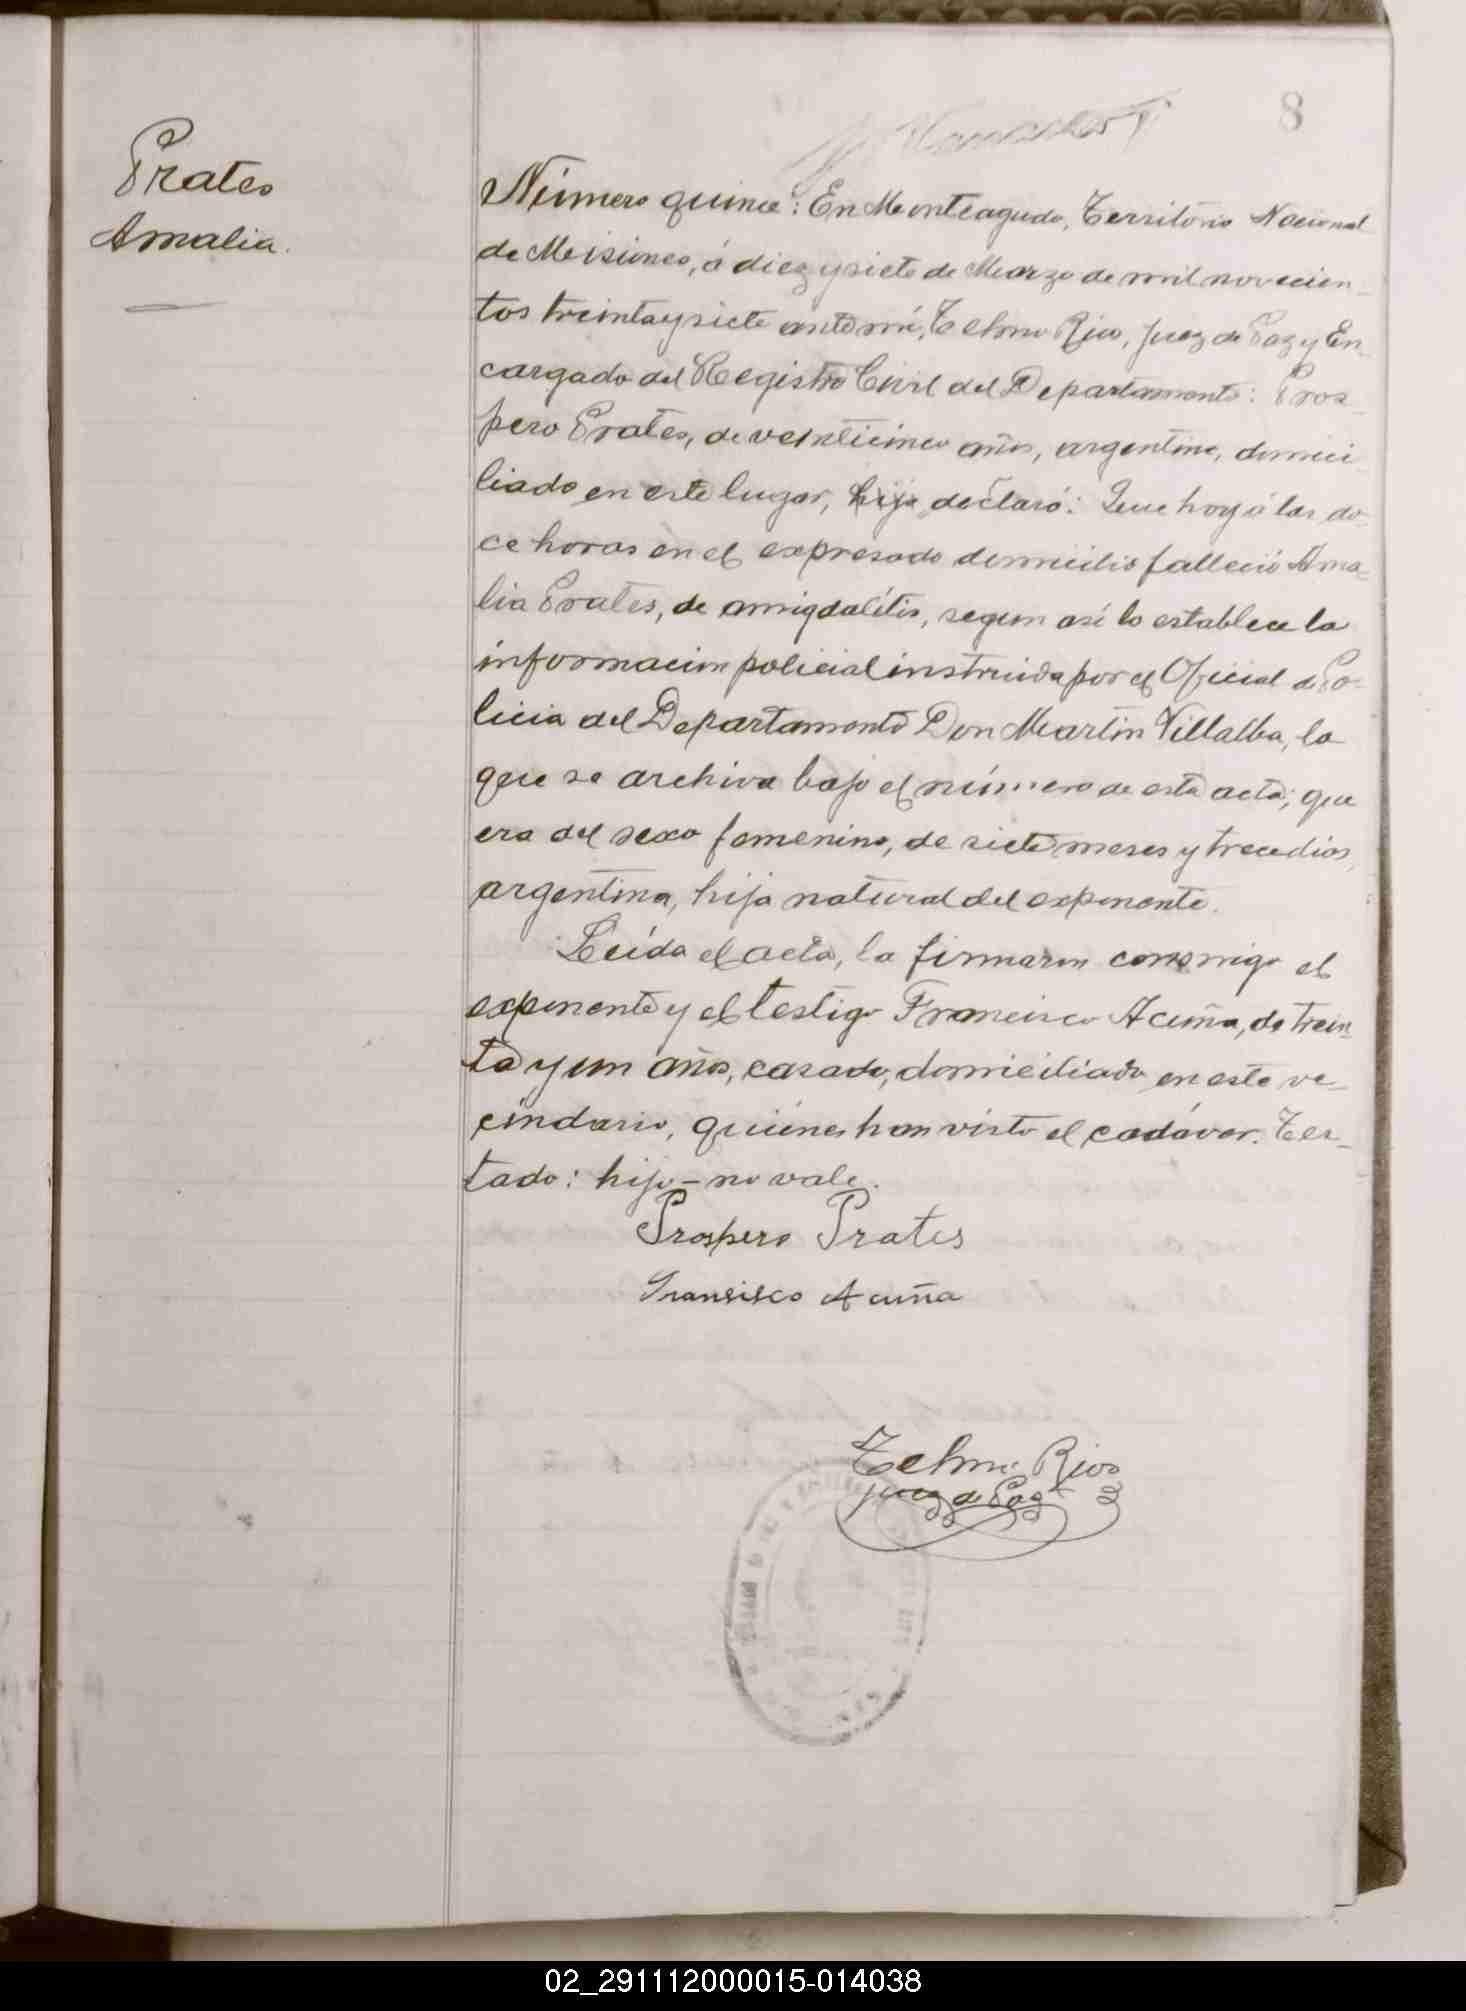 8
Prates
Amalia.
Número quince: En Monteagudo, Territorio Nacional
de Misiones, á diez y siete de Marzo de mil novecien-
tos treinta y siete ante mí, Telmo Rios, Juez de Paz y En-
cargado del Registro Civil del Departamento: Pros-
pero Prates, de veinticinco años, argentino, domici-
liado en este lugar, hijo, declaró: Que hoy á las do-
ce horas en el expresado domicilio falleció Ama-
lia Prates, de amigdalítis, segun así lo establece la
informacion policial instruida por el Oficial de Po-
licia del Departamento Don Martin Villalba, la
que se archiva bajo el número de esta acta; que
era del sexo femenino, de siete meses y trece dias,
argentina, hija natural del exponente.
Leída el acta, la firmaron conmigo el
exponente y el testigo Francisco Acuña, de trein-
ta y un años, casado, domiciliado en este ve-
cindario, quiénes han visto el cadáver. Tes-
tado: hijo - no vale.
Prospero Prates
Fransisco Acuña
Telmo Rios
juez de Paz
02_291112000015-014038